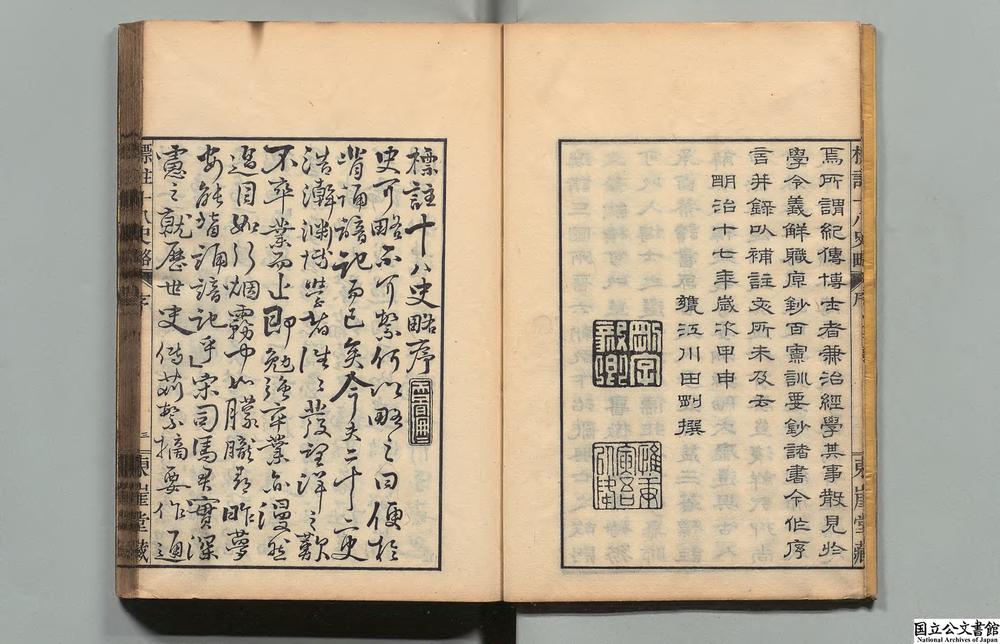 焉所謂紀傳博士者兼治經學其事散見於
學令義解職原鈔百寮訓要鈔諸書今作序
言并録以補註文所未及云
明治十七年歲次甲申
甕江川田剛撰
剛字毅卿
標註十八史略序
史可略不可繁何以略之曰便於
背誦諳記而已矣今夫二十二史
浩瀚淵博學者往々發望洋之歎
不卒業而止即勉強卒業亦漫然
過目如行烟霧中如朦朧尋昨夢
安能背誦諳記乎宋司馬君實深
慮之就歷世史傳芟繁摘要作通
標註十八史略 序 三 東崖堂藏
国立公文書館
National Archives of Japan